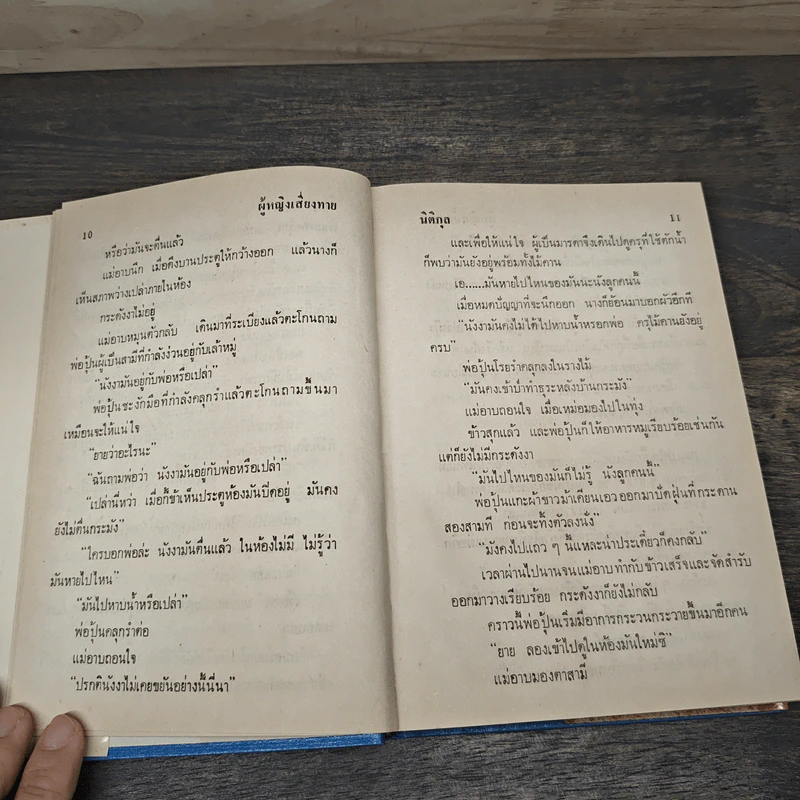 10
ผู้หญิงเสี่ยงทาย
หรือว่ามันจะตื่นแล้ว
แม่อาบนึก เมื่อดึงบานประตูให้กว้างออก แล้วนางก็
เห็นสภาพว่างเปล่าภายในห้อง
กระดังงาไม่อยู่
แม่อาบหมุนตัวกลับ เดินมาที่ระเบียงแล้วตะโกนถาม
พ่อปุ้นผู้เป็นสามีที่กำลังง่วนอยู่กับเล้าหมู่
“นังงามันอยู่กับพ่อหรือเปล่า”
พ่อปุ้นชะงักมือที่กำลังคลุกรำแล้วตะโกนถามขึ้นมา
เหมือนจะให้แน่ใจ
“ยายว่าอะไรนะ”
“ฉันถามพ่อว่า นังงามันอยู่กับพ่อหรือเปล่า”
“เปล่านี่หว่า เมื่อกี้ข้าเห็นประตูห้องมันปิดอยู่ มันคง
ยังไม่ตื่นกระมัง”
“ใครบอกพ่อล่ะ นังงามันตื่นแล้ว ในห้องไม่มี ไม่รู้ว่า
มันหายไปไหน”
“มันไปหาบน้ำหรือเปล่า”
พ่อปุ้นคลุกรำต่อ
แม่อาบถอนใจ
“ปรกตินังงาไม่เคยขยันอย่างนี้นี่นา”
นิติกุล
11
และเพื่อให้แน่ใจ ผู้เป็นมารดาจึงเดินไปดูครุที่ใช้ตักน้ำ
ก็พบว่ามันยังอยู่พร้อมทั้งไม้คาน
เอ......มันหายไปไหนของมันนะนังลูกคนนี้
เมื่อหมดปัญญาที่จะนึกออก นางก็ย้อนมาบอกผัวอีกที
“นังงามันคงไม่ได้ไปหาบน้ำหรอกพ่อ ครุไม้คานยังอยู่
ครบ”
พ่อปุ้นโรยรำคลุกลงในรางไม้
“มันคงเข้าป่าทำธุระหลังบ้านกระมัง”
แม่อาบถอนใจ เมื่อเหม่อมองไปในทุ่ง
ข้าวสุกแล้ว และพ่อปุ้นก็ให้อาหารหมูเรียบร้อยเช่นกัน
แต่ก็ยังไม่มีกระดังงา
“มันไปไหนของมันก็ไม่รู้ นังลูกคนนี้”
พ่อปุ้นแกะผ้าขาวม้าเคียนเอวออกมาปัดฝุ่นที่กระดาน
สองสามที ก่อนจะทิ้งตัวลงนั่ง
“มังคงไปแถว ๆ นี้แหละน่าประเดี๋ยวก็คงกลับ”
เวลาผ่านไปนานจนแม่อาบทำกับข้าวเสร็จและจัดสำรับ
ออกมาวางเรียบร้อย กระดังงาก็ยังไม่กลับ
คราวนี้พ่อปุ้นเริ่มมีอาการกระวนกระวายขึ้นมาอีกคน
“ยาย ลองเข้าไปดูในห้องมันใหม่ซิ”
แม่อาบมองตาสามี